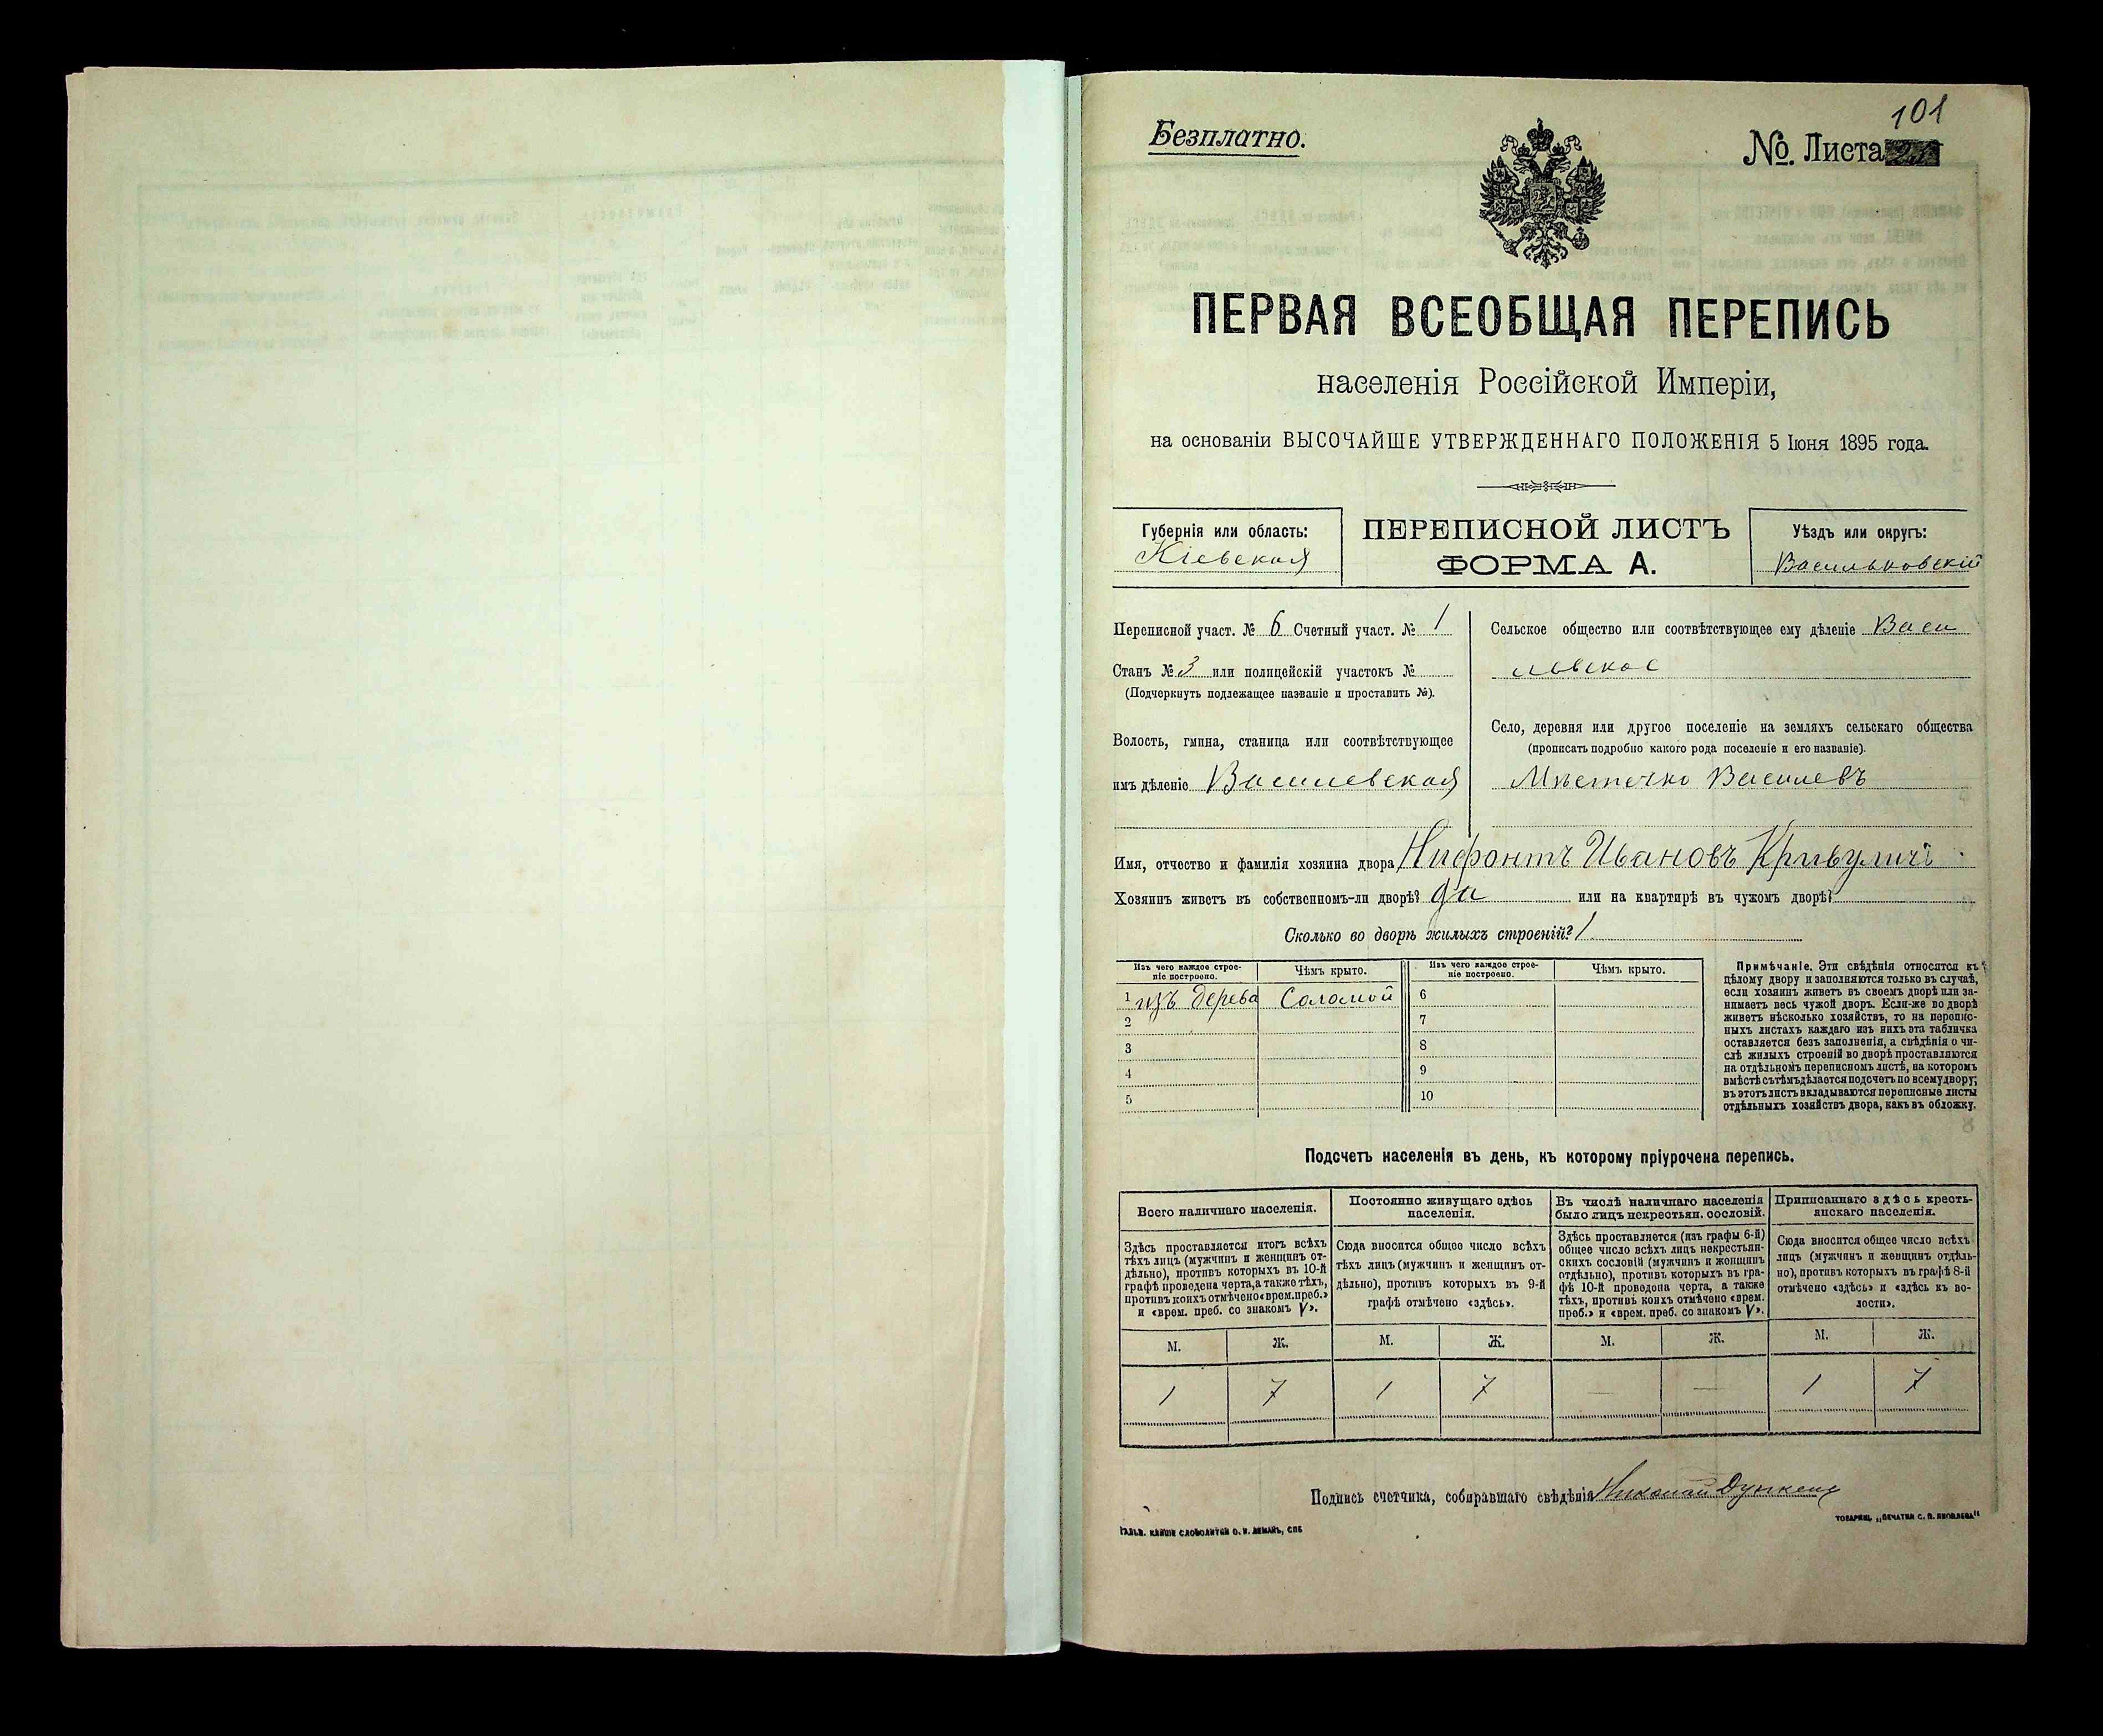 101
Безплатно.
№. Листа
ПЕРВАЯ ВСЕОБЩАЯ ПЕРЕПИСЬ
населенія Россійской Имперіи,
на основаніи ВЫСОЧАЙШЕ УТВЕРЖДЕННАГО ПОЛОЖЕНІЯ 5 Іюня 1895 года.
Губернія или область:
Кіевская
ПЕРЕПИСНОЙ ЛИСТЪ
ФОРМА А.
Уѣздъ или округъ:
Васильковскій
Переписной участ. № 6 Счетный участ. № 1
Станъ № 3 или полицейскій участокъ №
(Подчеркнуть подлежащее названіе и проставить №).
Волость, гмина, станица или соотвѣтствующее
имъ дѣленіе Василевская
Сельское общество или соотвѣтствующее ему дѣленіе Васи
левское
Село, деревня или другое поселеніе на земляхъ сельскаго общества
(прописать подробно какого рода поселеніе и его названіе).
Мѣстечко Василевъ
Имя, отчество и фамилія хозяина двора Нифонтъ Ивановъ
Хозяинъ живетъ въ собственномъ-ли дворѣ? да или на квартирѣ въ чужомъ дворѣ?
Сколько во дворѣ жилыхъ строеній? 1
Изъ чего каждое строе-
ніе построено.
Чѣмъ крыто.
Изъ чего каждое строе-
ніе построено.
Чѣмъ крыто.
1 изъ дерева Соломой 6
2 7
3 8
4 9
5 10
Примѣчаніе. Эти свѣдѣнія относятся къ
цѣлому двору и заполняются только въ случаѣ,
если хозяинъ живетъ въ своемъ дворѣ или за-
нимаетъ весь чужой дворъ. Если-же во дворѣ
живетъ нѣсколько хозяйствъ, то на перепис-
ныхъ листахъ каждаго изъ нихъ эта табличка
оставляется безъ заполненія, а свѣдѣнія о чи-
слѣ жилыхъ строеній во дворѣ проставляются
на отдѣльномъ переписномъ листѣ, на которомъ
вмѣстѣ съ тѣмъ дѣлается подсчетъ по всему двору;
въ этотъ листъ вкладываются переписные листы
отдѣльныхъ хозяйствъ двора, какъ въ обложку.
Подсчетъ населенія въ день, къ которому пріурочена перепись.
Всего наличнаго населенія.
Здѣсь проставляется итогъ всѣхъ
тѣхъ лицъ (мужчинъ и женщинъ от-
дѣльно), противъ которыхъ въ 10-й
графѣ проведена черта, а также тѣхъ,
противъ коихъ отмѣчено «врем. преб.»
и «врем. преб. со знакомъ V».
Постоянно живущаго здѣсь
населенія.
Сюда вносится общее число всѣхъ
тѣхъ лицъ (мужчинъ и женщинъ от-
дѣльно), противъ которыхъ въ 9-й
графѣ отмѣчено «здѣсь».
Въ числѣ наличнаго населенія
было лицъ некрестьян. сословій.
Здѣсь проставляется (изъ графы 6-й)
общее число всѣхъ лицъ некрестьян-
скихъ сословій (мужчинъ и женщинъ
отдѣльно), противъ которыхъ въ гра-
фѣ 10-й проведена черта, а также
тѣхъ, противъ коихъ отмѣчено «врем.
преб.» и «врем. преб. со знакомъ V».
Приписаннаго здѣсь кресть-
янскаго населенія.
Сюда вносится общее число всѣхъ
лицъ (мужчинъ и женщинъ отдѣль-
но), противъ которыхъ въ графѣ 8-й
отмѣчено «здѣсь» и «здѣсь къ во-
лости».
М. Ж. М. Ж. М. Ж. М. Ж.
1 7 1 7 — — 1 7
Подпись счетчика, собиравшаго свѣдѣнія Николай